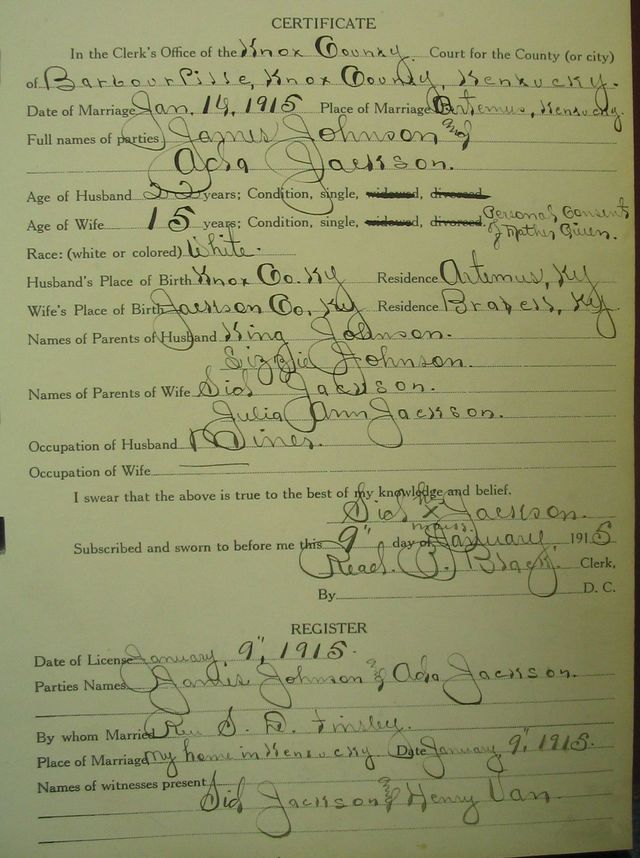 CERTIFICATE
In the Clerk's Office of the Knox County Court for the County (or city)
of Barbourville, Knox County, Kentucky.
Date of Marriage Jan. 14, 1915 Place of Marriage Artemus, Kentucky.
Full names of parties James Johnson and
Ada Jackson.
Age of Husband 22 years; Condition, single, widowed, divorced
Age of Wife 15 years; Condition, single, widowed, divorced. Personal Consent
of Mother Given.
Race: (white or colored) White.
Husband's Place of Birth Knox Co. Ky Residence Artemus, Ky
Wife's Place of Birth Jackson Co, Ky Residence Ky
Names of Parents of Husband King Johnson.
Lizzie Johnson.
Names of Parents of Wife Sid Jackson.
Julia Ann Jackson.
Occupation of Husband Miner.
Occupation of Wife
I swear that the above is true to the best of my knowledge and belief.
Sid his X Jackson.
mark
Subscribed and sworn to before me this 9" day of January 1915
Read. P. Black Clerk,
By D. C.
REGISTER
Date of License January, 9", 1915.
Parties Names James Johnson & Ada Jackson.
By whom Married Rev S. D. Tinsley.
Place of Marriage My home in Kentucky Date January 9", 1915.
Names of witnesses present
Sid Jackson & Henry Van